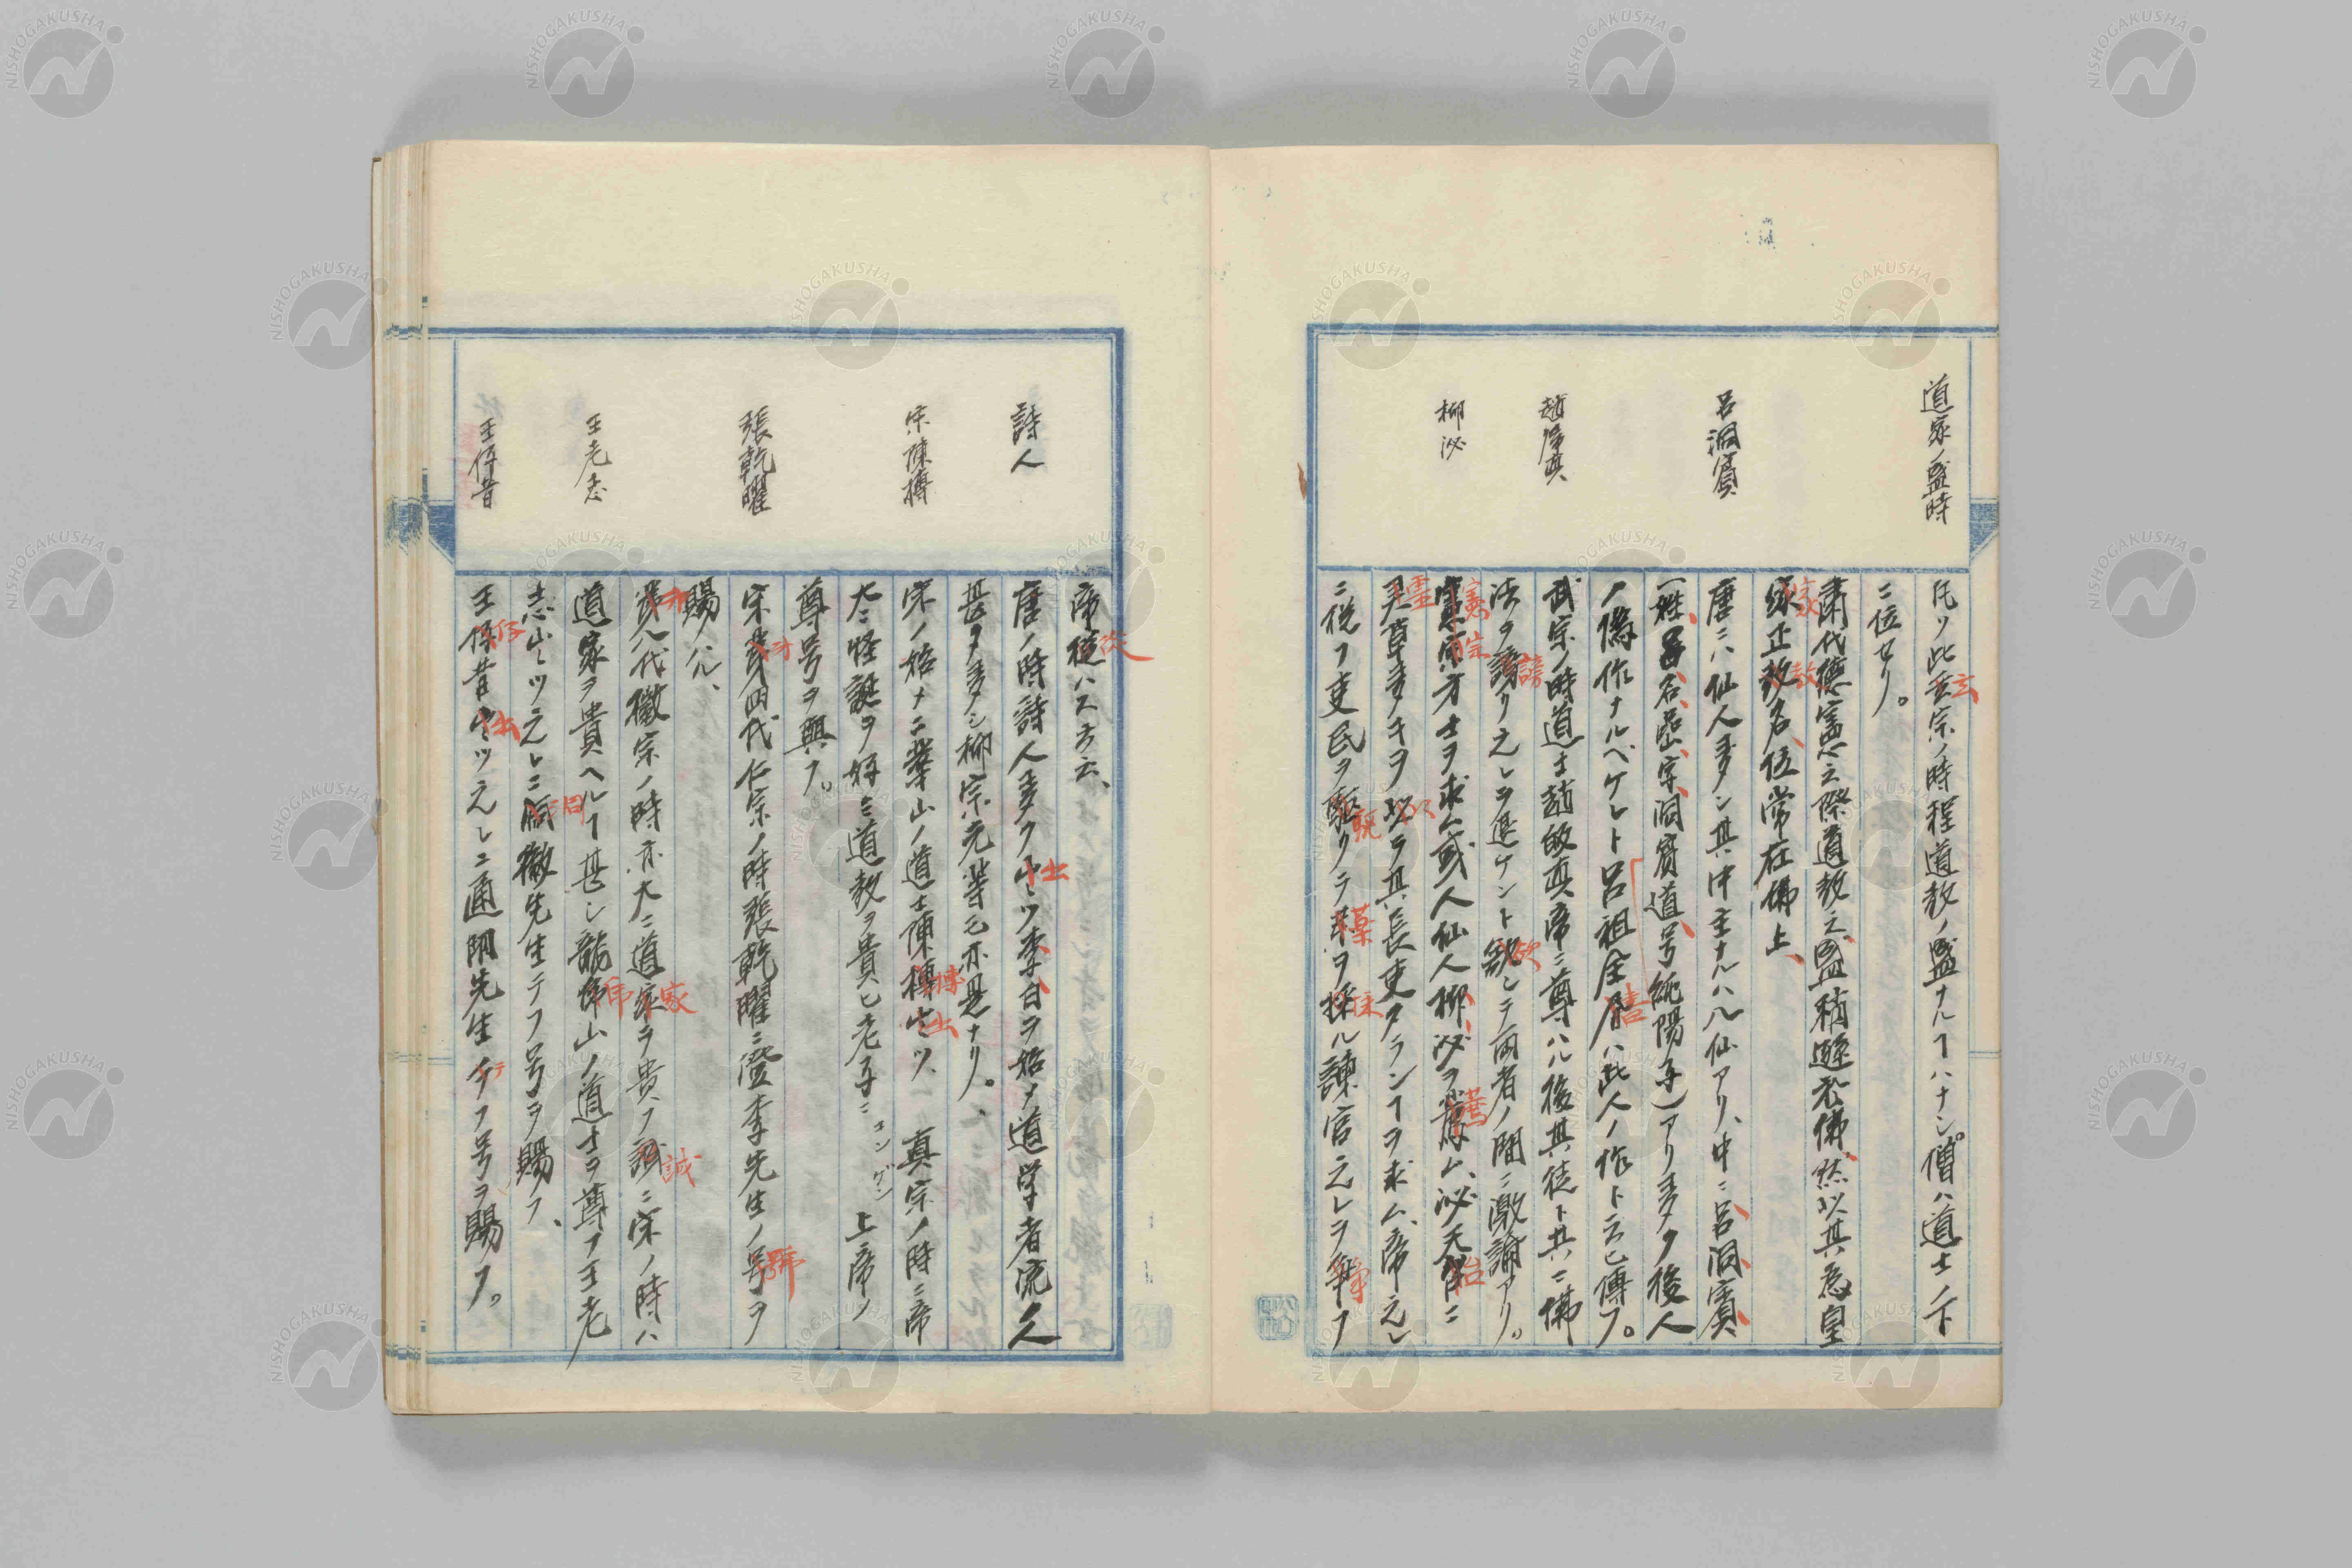 道家ノ盛時
凡ソ此玄宗ノ時程道教ノ盛ナルヿハナシ。僧ハ道士ノ下
ニ位セリ。
肅代德憲之際道教之盛稍遜於佛、然以其為皇
家正教、名位常在佛上、
呂洞賓
唐ニハ仙人多シ其中主ナルハ八仙アリ、中ニ呂洞賓
(姓呂、名嵒、字洞賓、道号純陽子)アリ多ク後人
ノ偽作ナルベケレト呂祖全書ハ此人ノ作ト云ヒ傳フ。
趙歸真
武宗ノ時道士趙歸真帝ニ尊ハル後其徒ト共ニ佛
法ヲ謗リ之レヲ退ケント欲シテ両者ノ間ニ激論アリ。
柳泌
憲宗方士ヲ求ム或人仙人柳泌ヲ薦ム、泌天台ニ
灵草多キヲ以テ其長吏タランヿヲ求ム、帝之レ
ニ従フ吏民ヲ駆リテ薬ヲ採ル諫官之レヲ爭フ
帝従ハスト云、
詩人
唐ノ時詩人多ク出ツ李白ヲ始メ道学者流ノ人
甚タ多シ柳宗元等モ亦是ナリ。
宋陳搏
宋ノ始メニ華山ノ道士陳摶出ツ、真宗ノ時ニ帝
大ニ怪誕ヲ好ミ道教ヲ貴ヒ老子ニ コンゲン 上帝ノ
尊号ヲ與フ。
張乾曜
宋第四代仁宗ノ時張乾曜ニ澄素先生ノ号ヲ
賜ハル、
第八代徽宗ノ時亦大ニ道家ヲ貴フ誠ニ宋ノ時ハ
王老志
道家ヲ貴ヘルヿ甚シ龍虎山ノ道士ヲ尊フ王老
志出ツ之レニ洞微先生テフ号ヲ賜フ、
王仔昔
王仔昔出ツ之レニ通明先生テフ号ヲ賜フ。
NISHOGAKUSHA